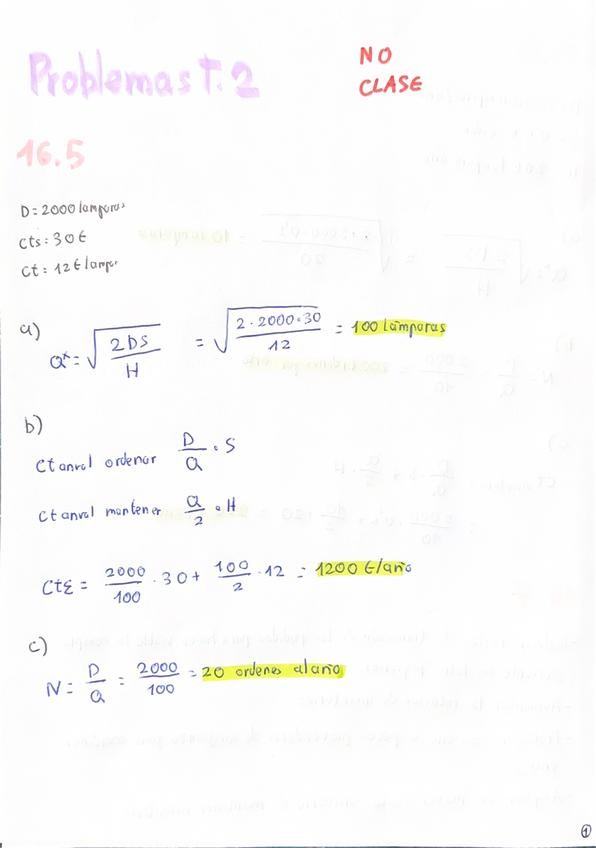 Problemas T. 2
NO
CLASE
16.5
D = 2000 lámparas
Cts = 30 €
Ct = 12 €/lampar
a)
Q* = √(2DS / H) = √(2 · 2000 · 30 / 12) = 100 lámparas
b)
Ct anual ordenar D/Q · S
Ct anual mantener Q/2 · H
CtE = 2000/100 · 30 + 100/2 · 12 = 1200 €/año
c)
N = D/Q = 2000/100 = 20 ordenes al año
1